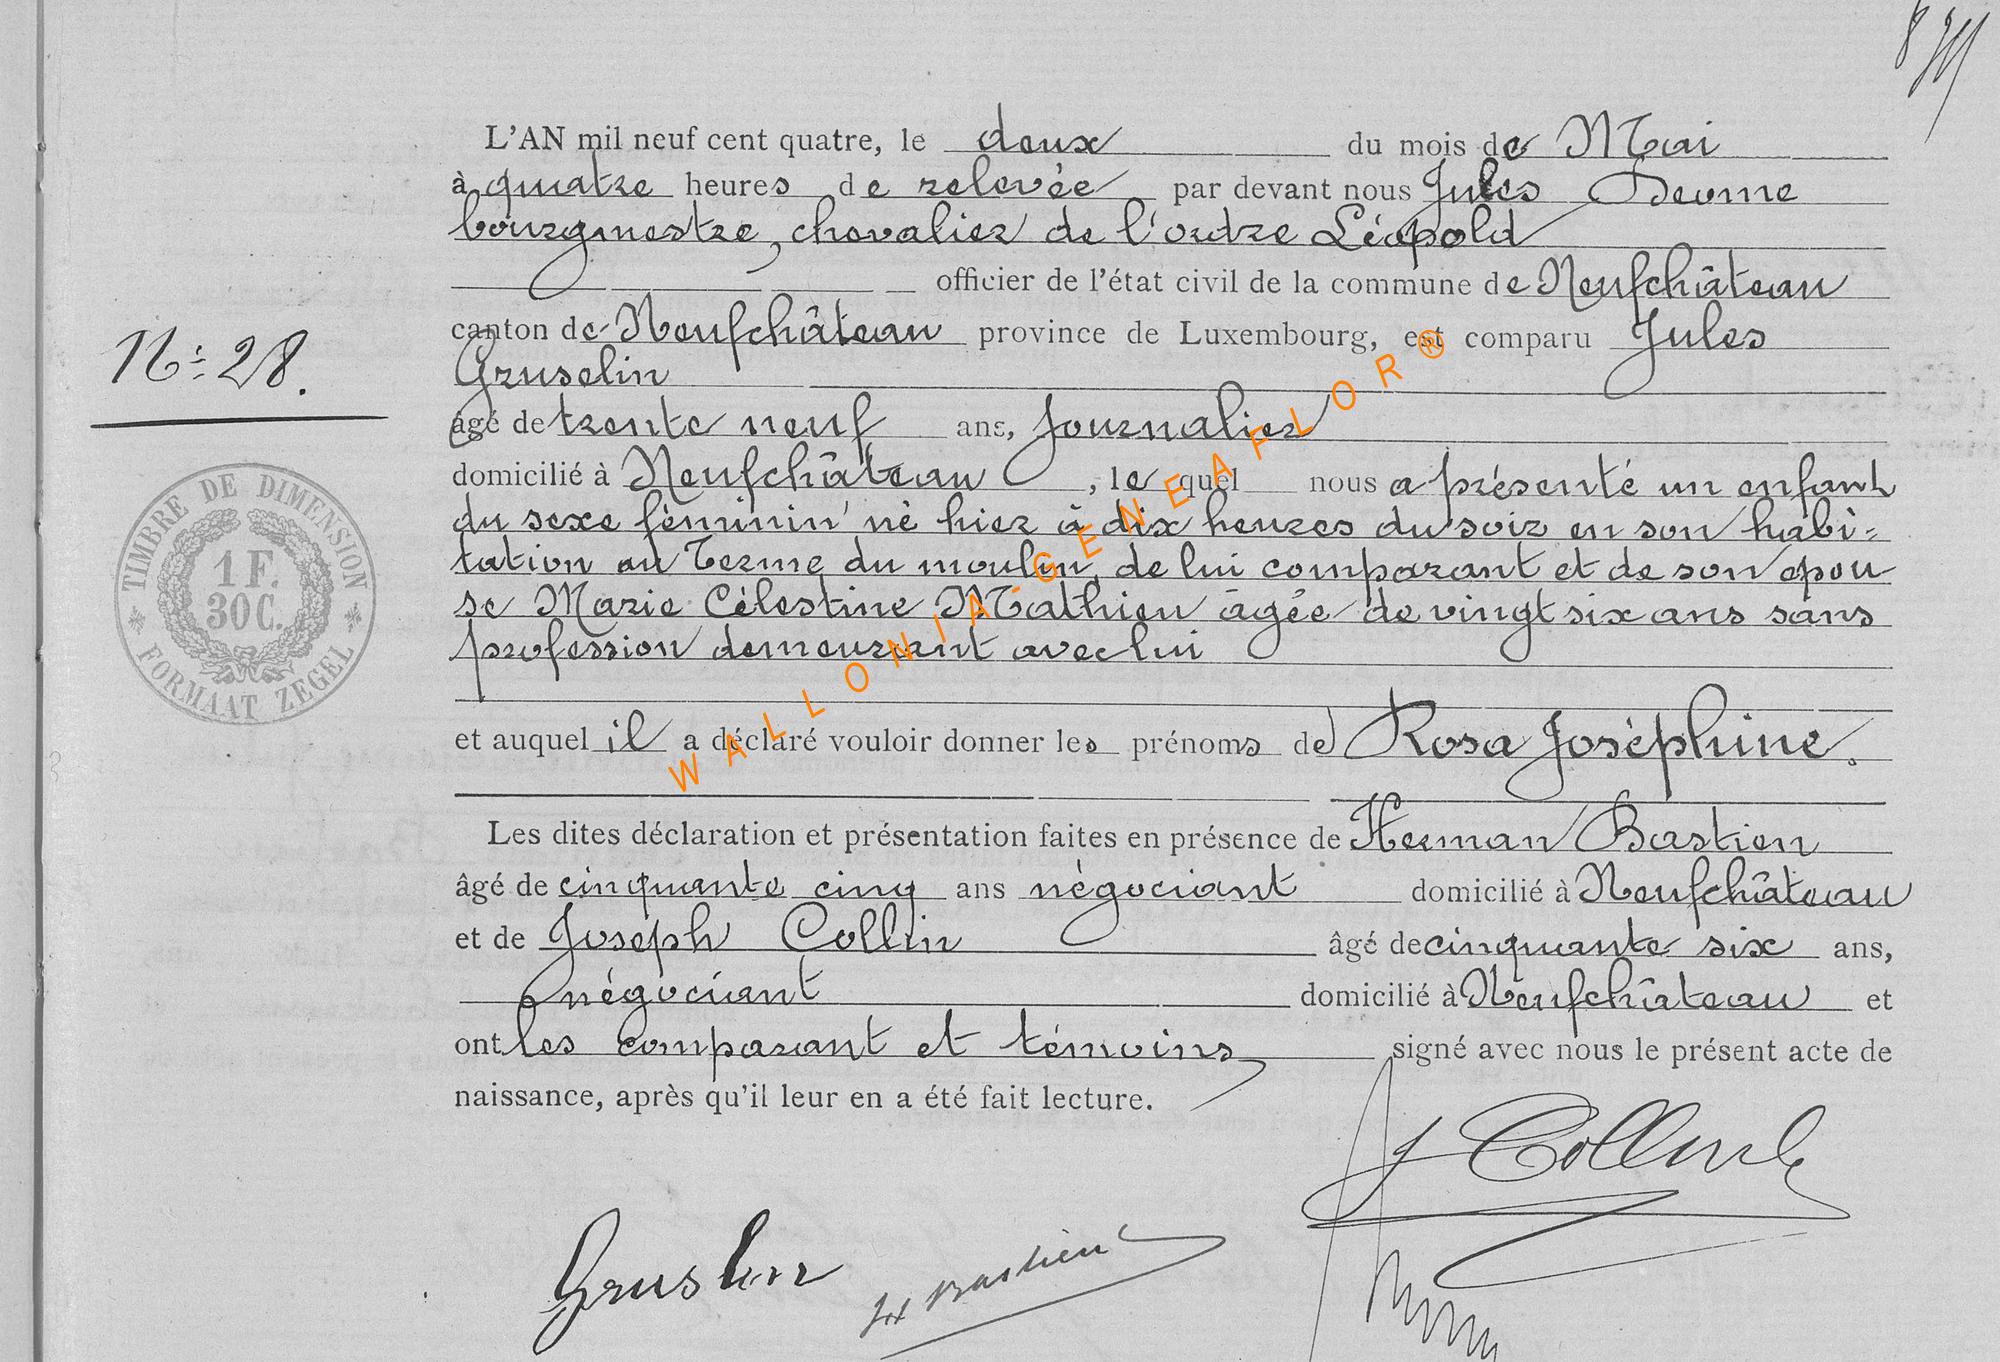 L'AN mil neuf cent quatre, le deux du mois de Mai
à quatre heures de relevée par devant nous Jules
bourgmestre, chevalier de l'ordre Léopold
officier de l'état civil de la commune de Neufchâteau
canton de Neufchâteau province de Luxembourg, est comparu Jules
Gruselin
âgé de trente neuf ans, Journalier
domicilié à Neufchâteau, le quel nous a présenté un enfant
du sexe féminin né hier à dix heures du soir en son habi=
tation au Terme du moulin, de lui comparant et de son épou
se Marie Célestine Mathieu âgée de vingt six ans sans
profession demeurant avec lui
et auquel il a déclaré vouloir donner les prénoms de Rosa Joséphine.
Les dites déclaration et présentation faites en présence de Herman Bastien
âgé de cinquante cinq ans négociant domicilié à Neufchâteau
et de Joseph Collin âgé de cinquante six ans,
négociant domicilié à Neufchâteau et
ont les comparant et témoins signé avec nous le présent acte de
naissance, après qu'il leur en a été fait lecture.
N° 28.
TIMBRE DE DIMENSION
1 F.
30 C.
FORMAAT ZEGEL
WALLONIA-GENEAFLOR®
J Collin
Gruslin
H Bastien